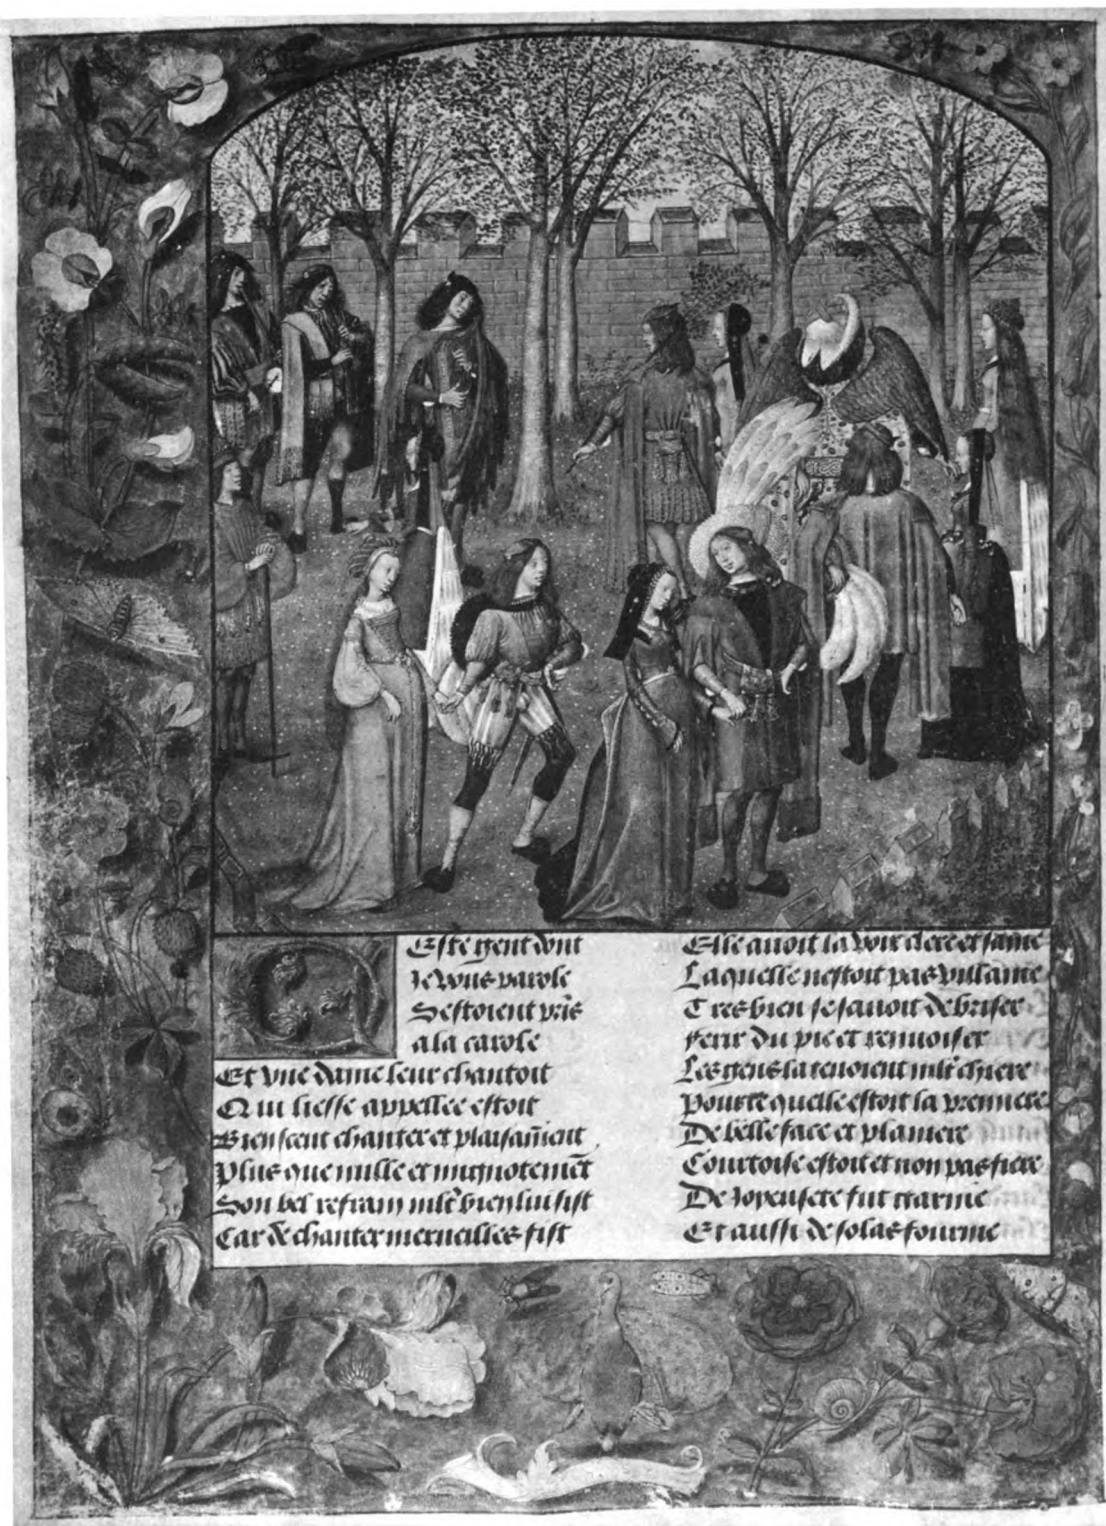 Ceste gent dont
Je vous parole
Sestoient pris
a la carole
Et vne dame leur chantoit
Qui liesse appellee estoit
Bien scent chanter et plaisam̄ent
Plus que nulle et mignotemēt
Son bel refrain mlt bien lui sist
Car de chanter merueilles fist
Elle auoit la voix clere et saine
Laquelle nestoit pas villaine
Tres bien se sauoit debriser
ferir du pie et renuoiser
Les gens la tenoient mlt chiere
Pource quelle estoit la premiere
De belle face et planiere
Courtoise estoit et non pas fiere
De Joyeusete fut
Et aussi de solas fournie